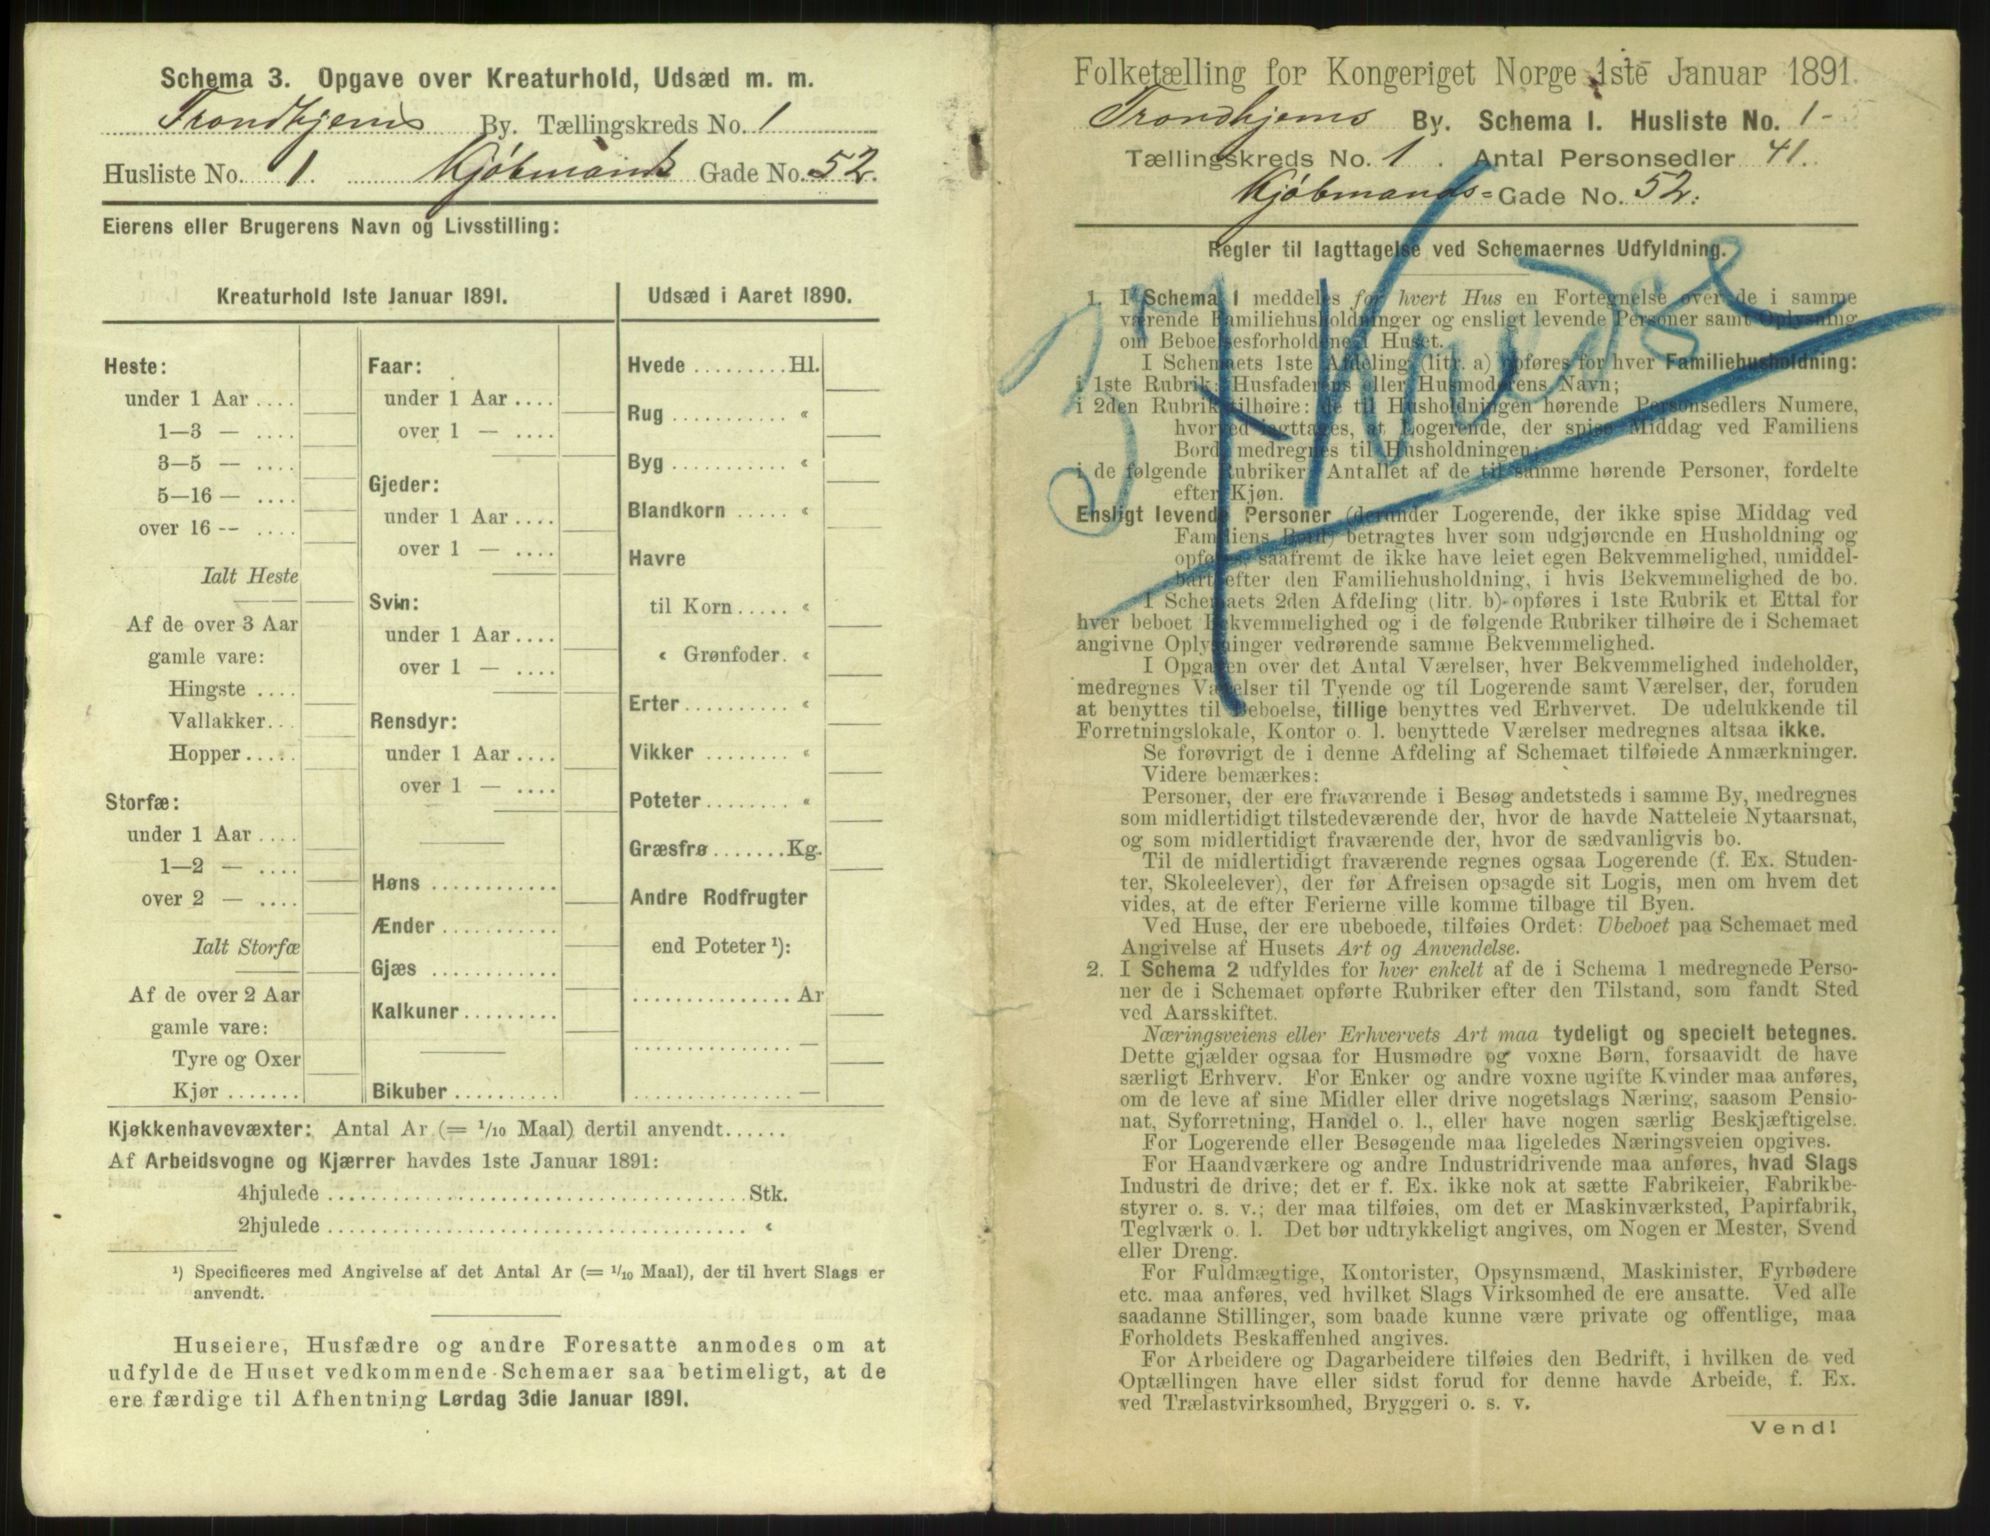 Schema 3. Opgave over Kreaturhold, Udsæd m. m.
Trondhjems By. Tællingskreds No. 1
Husliste No. 1. Kjöbmands Gade No. 52.
Eierens eller Brugerens Navn og Livsstilling:
Kreaturhold 1ste Januar 1891.
Heste:
under 1 Aar ....
1—3 — ....
3—5 — ....
5—16 — ....
over 16 -- ....
Ialt Heste
Af de over 3 Aar
gamle vare:
Hingste ....
Vallakker...
Hopper.....
Storfæ:
under 1 Aar ....
1—2 — ....
over 2 — ....
Ialt Storfæ
Af de over 2 Aar
gamle vare:
Tyre og Oxer
Kjør .......
Faar:
under 1 Aar ....
over 1 — ....
Gjeder:
under 1 Aar ....
over 1 — ....
Svin:
under 1 Aar ....
over 1 — ....
Rensdyr:
under 1 Aar ....
over 1 — ....
Høns ............
Ænder ...........
Gjæs ............
Kalkuner.........
Bikuber ..........
Udsæd i Aaret 1890.
Hvede ......... Hl.
Rug ........... «
Byg ........... «
Blandkorn ..... «
Havre
til Korn ..... «
« Grønfoder. «
Erter .......... «
Vikker ........ «
Poteter ........ «
Græsfrø ....... Kg.
Andre Rodfrugter
end Poteter ¹):
............... Ar
............... —
............... —
Kjøkkenhavevæxter: Antal Ar (= 1/10 Maal) dertil anvendt......
Af Arbeidsvogne og Kjærrer havdes 1ste Januar 1891:
4hjulede ........................................ Stk.
2hjulede ........................................ «
¹) Specificeres med Angivelse af det Antal Ar (= 1/10 Maal), der til hvert Slags er
anvendt.
Huseiere, Husfædre og andre Foresatte anmodes om at
udfylde de Huset vedkommende Schemaer saa betimeligt, at de
ere færdige til Afhentning Lørdag 3die Januar 1891.
Folketælling for Kongeriget Norge 1ste Januar 1891.
Trondhjems By. Schema 1. Husliste No. 1-
Tællingskreds No. 1. Antal Personsedler 41.
Kjöbmands=Gade No. 52.
Regler til Iagttagelse ved Schemaernes Udfyldning.
1. I Schema 1 meddeles for hvert Hus en Fortegnelse over de i samme
værende Familiehusholdninger og ensligt levende Personer samt Oplysning
om Beboelsesforholdene i Huset.
I Schemaets 1ste Afdeling (litr. a) opføres for hver Familiehusholdning:
i 1ste Rubrik: Husfaderens eller Husmoderens Navn;
i 2den Rubrik tilhøire: de til Husholdningen hørende Personsedlers Numere,
hvorved iagttages, at Logerende, der spise Middag ved Familiens
Bord, medregnes til Husholdningen;
i de følgende Rubriker: Antallet af de til samme hørende Personer, fordelte
efter Kjøn.
Ensligt levende Personer (derunder Logerende, der ikke spise Middag ved
Familiens Bord) betragtes hver som udgjørende en Husholdning og
opføres, saafremt de ikke have leiet egen Bekvemmelighed, umiddel-
bart efter den Familiehusholdning, i hvis Bekvemmelighed de bo.
I Schemaets 2den Afdeling (litr. b) opføres i 1ste Rubrik et Ettal for
hver beboet Bekvemmelighed og i de følgende Rubriker tilhøire de i Schemaet
angivne Oplysninger vedrørende samme Bekvemmelighed.
I Opgaven over det Antal Værelser, hver Bekvemmelighed indeholder,
medregnes Værelser til Tyende og til Logerende samt Værelser, der, foruden
at benyttes til Beboelse, tillige benyttes ved Erhvervet. De udelukkende til
Forretningslokale, Kontor o. l. benyttede Værelser medregnes altsaa ikke.
Se forøvrigt de i denne Afdeling af Schemaet tilføiede Anmærkninger.
Videre bemærkes:
Personer, der ere fraværende i Besøg andetsteds i samme By, medregnes
som midlertidigt tilstedeværende der, hvor de havde Natteleie Nytaarsnat,
og som midlertidigt fraværende der, hvor de sædvanligvis bo.
Til de midlertidigt fraværende regnes ogsaa Logerende (f. Ex. Studen-
ter, Skoleelever), der før Afreisen opsagde sit Logis, men om hvem det
vides, at de efter Ferierne ville komme tilbage til Byen.
Ved Huse, der ere ubeboede, tilføies Ordet: Ubeboet paa Schemaet med
Angivelse af Husets Art og Anvendelse.
2. I Schema 2 udfyldes for hver enkelt af de i Schema 1 medregnede Perso-
ner de i Schemaet opførte Rubriker efter den Tilstand, som fandt Sted
ved Aarsskiftet.
Næringsveiens eller Erhvervets Art maa tydeligt og specielt betegnes.
Dette gjælder ogsaa for Husmødre og voxne Børn, forsaavidt de have
særligt Erhverv. For Enker og andre voxne ugifte Kvinder maa anføres,
om de leve af sine Midler eller drive nogetslags Næring, saasom Pensio-
nat, Syforretning, Handel o. l., eller have nogen særlig Beskjæftigelse.
For Logerende eller Besøgende maa ligeledes Næringsveien opgives.
For Haandværkere og andre Industridrivende maa anføres, hvad Slags
Industri de drive; det er f. Ex. ikke nok at sætte Fabrikeier, Fabrikbe-
styrer o. s. v.; der maa tilføies, om det er Maskinværksted, Papirfabrik,
Teglværk o. l. Det bør udtrykkeligt angives, om Nogen er Mester, Svend
eller Dreng.
For Fuldmægtige, Kontorister, Opsynsmænd, Maskinister, Fyrbødere
etc. maa anføres, ved hvilket Slags Virksomhed de ere ansatte. Ved alle
saadanne Stillinger, som baade kunne være private og offentlige, maa
Forholdets Beskaffenhed angives.
For Arbeidere og Dagarbeidere tilføies den Bedrift, i hvilken de ved
Optællingen have eller sidst forud for denne havde Arbeide, f. Ex.
ved Trælastvirksomhed, Bryggeri o. s. v.
Vend!